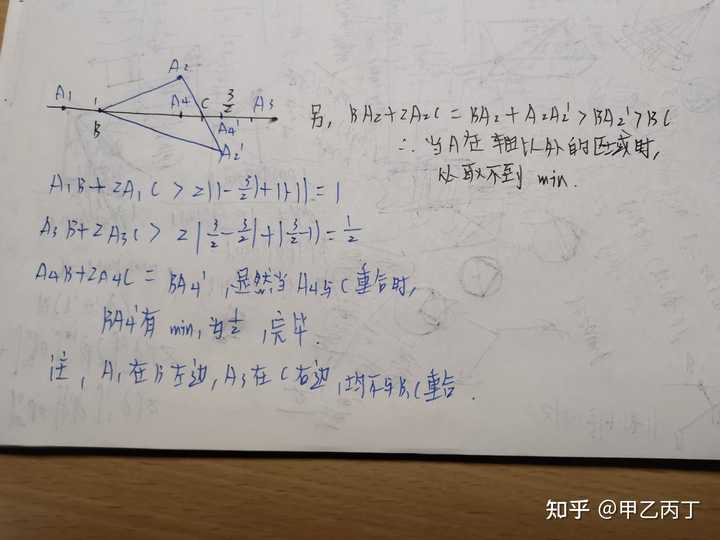 A₂
A₁ 1 A4 C 3/2 A₃
B A4'
A₂'
另, BA₂+2A₂C = BA₂+A₂A₂' > BA₂' > BC
∴ 当A在轴以外的区域时,
处取不到 min.
A₁B+2A₁C > 2|1-3/2|+|1-1| = 1
A₃B+2A₃C > 2|3/2-3/2|+|3/2-1| = 1/2
A4B+2A4C = BA4', 显然当A4与C重合时,
BA4'有 min, 为1/2, 完毕.
注, A₁在B左边, A₃在C右边, 均不与B,C重合.
知乎 @甲乙丙丁